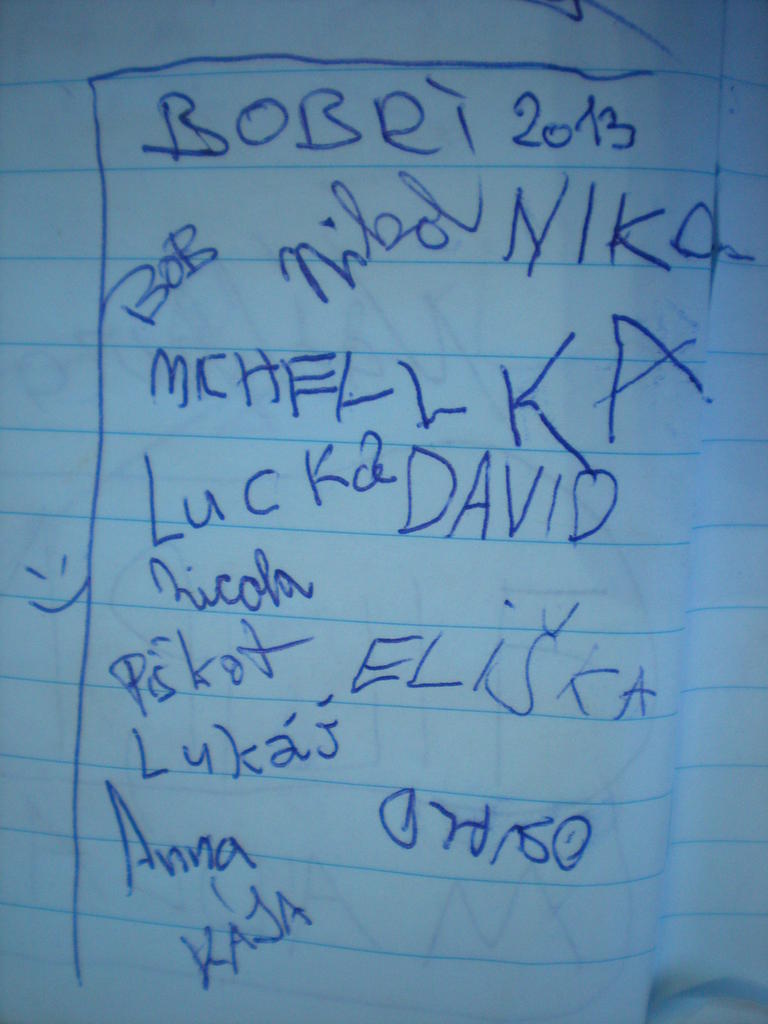 BOBŘI 2013
BOB nikol NIKA
MICHELLKA
LUCKA DAVID
nicola
Piškot ELIŠKA
Lukáš
Anna
KÁJA